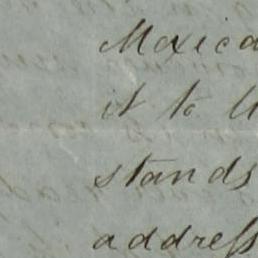 Mexica
it to
stands
addres